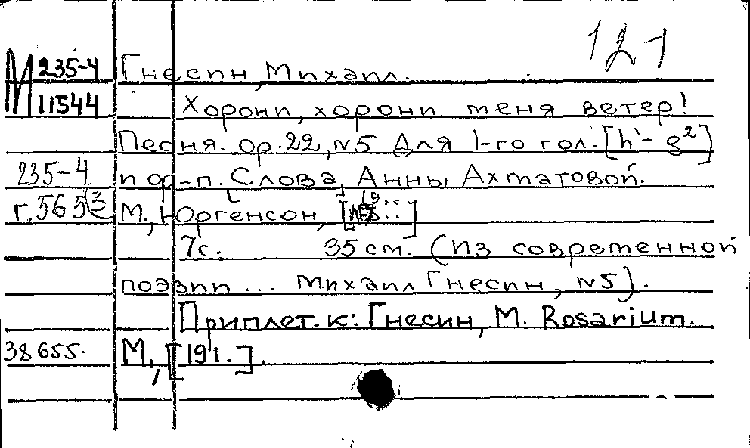 121
М 235-4 Гнесин, Михаил.
11544 Хорони, хорони меня ветер!
Песня. ор.22, №5 Для 1-го гол. [h'-g²]
235-4 и ф-п. Слова Анны Ахматовой.
г.565 М., Юргенсон,
7с. 35 см. (Из современной
поэзии... Михаил Гнесин, №5).
Приплет. к: Гнесин, М. Rosarium.
38655. М., [191.].